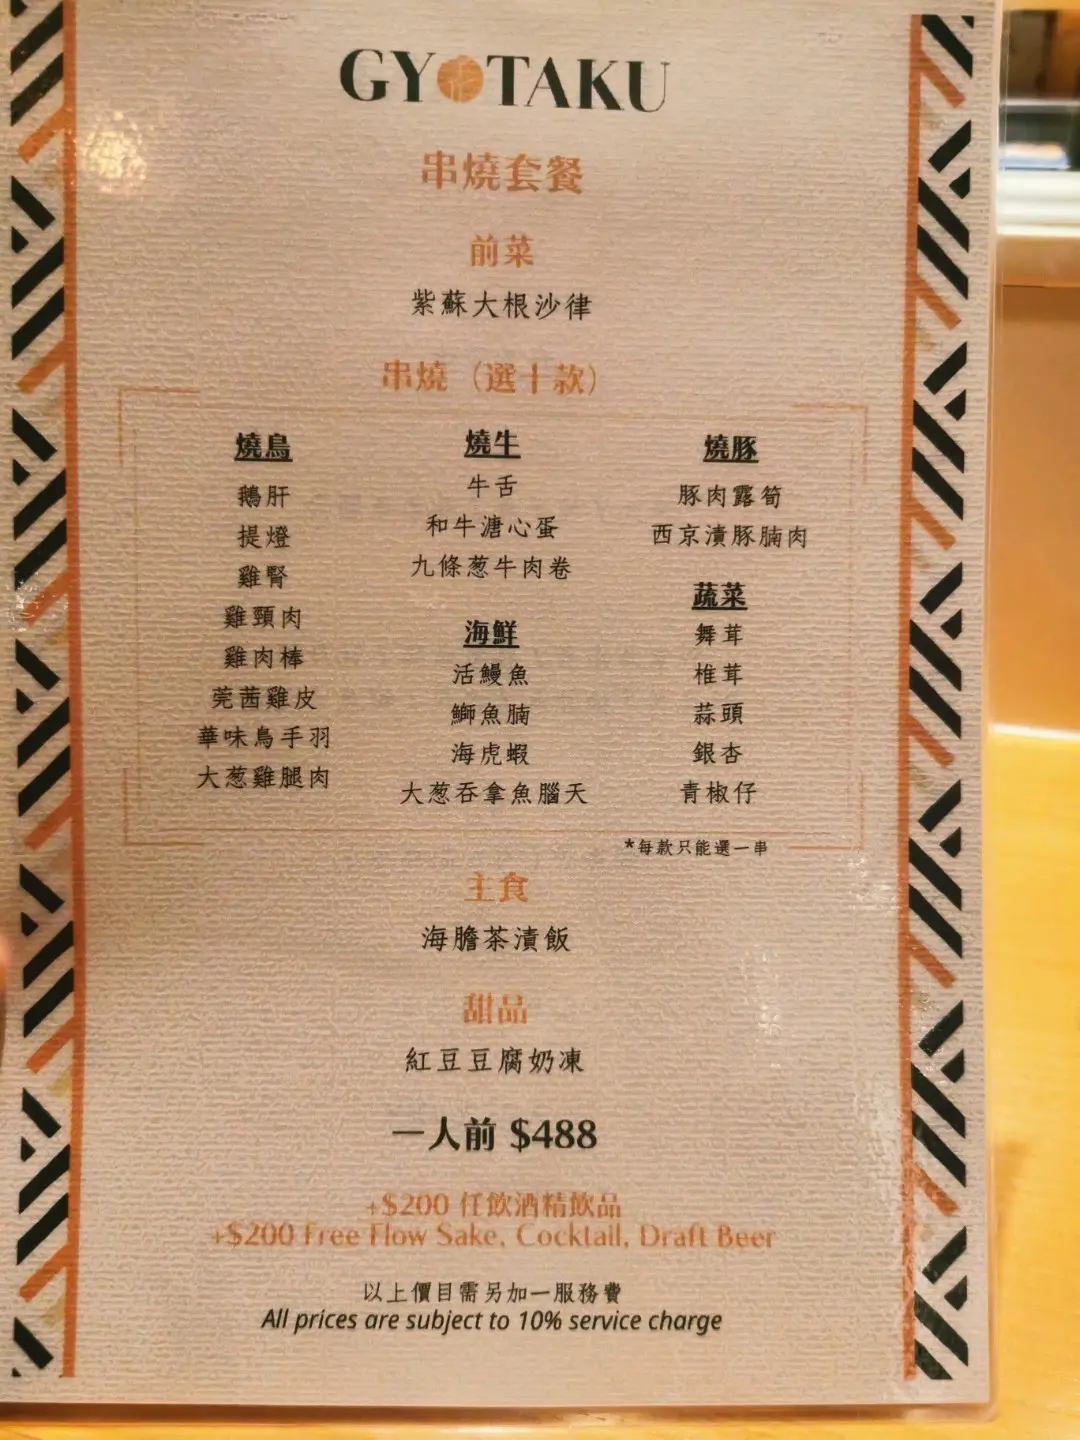 GYOTAKU
串燒套餐
前菜
紫蘇大根沙律
串燒（選十款）
燒鳥
鵝肝
提燈
雞腎
雞頸肉
雞肉棒
莞茜雞皮
華味鳥手羽
大葱雞腿肉
燒牛
牛舌
和牛溏心蛋
九條葱牛肉卷
海鮮
活鰻魚
鰤魚腩
海虎蝦
大葱吞拿魚腦天
燒豚
豚肉露筍
西京漬豚腩肉
蔬菜
舞茸
椎茸
蒜頭
銀杏
青椒仔
*每款只能選一串
主食
海膽茶漬飯
甜品
紅豆豆腐奶凍
一人前 $488
+$200 任飲酒精飲品
+$200 Free Flow Sake, Cocktail, Draft Beer
以上價目需另加一服務費
All prices are subject to 10% service charge